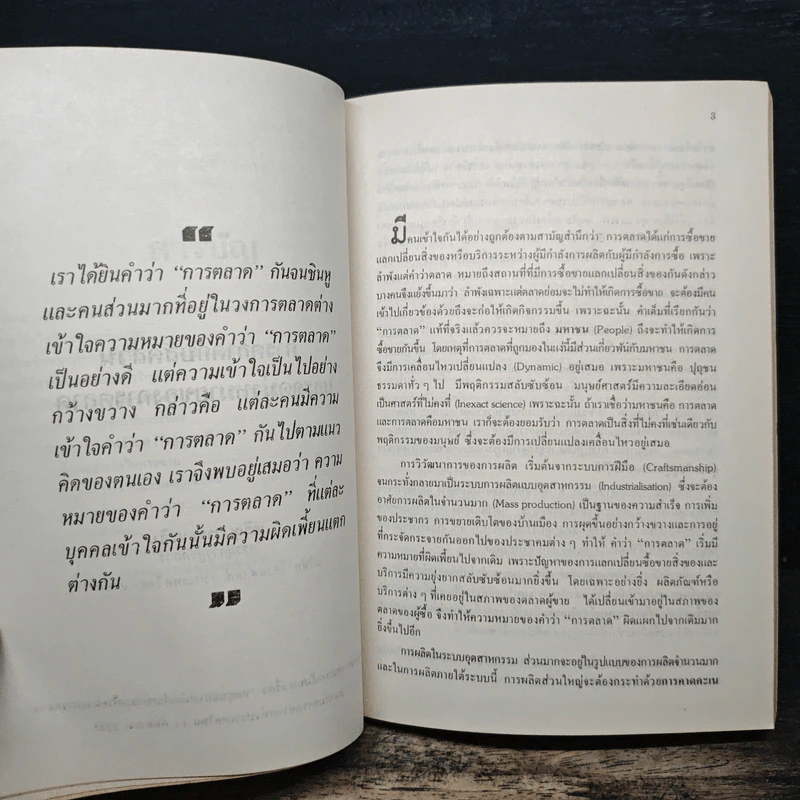 “
เราได้ยินคำว่า “การตลาด” กันจนชินหู
และคนส่วนมากที่อยู่ในวงการตลาดต่าง
เข้าใจความหมายของคำว่า “การตลาด”
เป็นอย่างดี แต่ความเข้าใจเป็นไปอย่าง
กว้างขวาง กล่าวคือ แต่ละคนมีความ
เข้าใจคำว่า “การตลาด” กันไปตามแนว
คิดของตนเอง เราจึงพบอยู่เสมอว่า ความ
หมายของคำว่า “การตลาด” ที่แต่ละ
บุคคลเข้าใจกันนั้นมีความผิดเพี้ยนแตก
ต่างกัน
”
3
มีคนเข้าใจกันได้อย่างถูกต้องตามสามัญสำนึกว่า การตลาดได้แก่การซื้อขาย
แลกเปลี่ยนสิ่งของหรือบริการระหว่างผู้มีกำลังการผลิตกับผู้มีกำลังการซื้อ เพราะ
ลำพังแต่คำว่าตลาด หมายถึงสถานที่ที่มีการซื้อขายแลกเปลี่ยนสิ่งของกันดังกล่าว
บางคนจึงแย้งขึ้นมาว่า ลำพังเฉพาะแต่ตลาดย่อมจะไม่ทำให้เกิดการซื้อขาย จะต้องมีคน
เข้าไปเกี่ยวข้องด้วยถึงจะก่อให้เกิดกิจกรรมขึ้น เพราะฉะนั้น คำเต็มที่เรียกกันว่า
“การตลาด” แท้ที่จริงแล้วควรจะหมายถึง มหาชน (People) ถึงจะทำให้เกิดการ
ซื้อขายกันขึ้น โดยเหตุที่การตลาดที่ถูกมองในแง่นี้มีส่วนเกี่ยวพันกับมหาชน การตลาด
จึงมีการเคลื่อนไหวเปลี่ยนแปลง (Dynamic) อยู่เสมอ เพราะมหาชนคือ ปุถุชน
ธรรมดาทั่ว ๆ ไป มีพฤติกรรมสลับซับซ้อน มนุษย์ศาสตร์มีความละเอียดอ่อน
เป็นศาสตร์ที่ไม่คงที่ (Inexact science) เพราะฉะนั้น ถ้าเราเชื่อว่ามหาชนคือ การตลาด
และการตลาดคือมหาชน เราก็จะต้องยอมรับว่า การตลาดเป็นสิ่งที่ไม่คงที่เช่นเดียวกับ
พฤติกรรมของมนุษย์ ซึ่งจะต้องมีการเปลี่ยนแปลงเคลื่อนไหวอยู่เสมอ
การวิวัฒนาการของการผลิต เริ่มต้นจากระบบการฝีมือ (Craftsmanship)
จนกระทั่งกลายมาเป็นระบบการผลิตแบบอุตสาหกรรม (Industrialisation) ซึ่งจะต้อง
อาศัยการผลิตในจำนวนมาก (Mass production) เป็นฐานของความสำเร็จ การเพิ่ม
ของประชากร การขยายเติบโตของบ้านเมือง การผุดขึ้นอย่างกว้างขวางและการอยู่
ที่กระจัดกระจายกันออกไปของประชาคมต่าง ๆ ทำให้ คำว่า “การตลาด” เริ่มมี
ความหมายที่ผิดเพี้ยนไปจากเดิม เพราะปัญหาของการแลกเปลี่ยนซื้อขายสิ่งของและ
บริการมีความยุ่งยากสลับซับซ้อนมากยิ่งขึ้น โดยเฉพาะอย่างยิ่ง ผลิตภัณฑ์หรือ
บริการต่าง ๆ ที่เคยอยู่ในสภาพของตลาดผู้ขาย ได้เปลี่ยนเข้ามาอยู่ในสภาพของ
ตลาดของผู้ซื้อ จึงทำให้ความหมายของคำว่า “การตลาด” ผิดแผกไปจากเดิมมาก
ยิ่งขึ้นไปอีก
การผลิตในระบบอุตสาหกรรม ส่วนมากจะอยู่ในรูปแบบของการผลิตจำนวนมาก
และในการผลิตภายใต้ระบบนี้ การผลิตส่วนใหญ่จะต้องกระทำด้วยการคาดคะเน